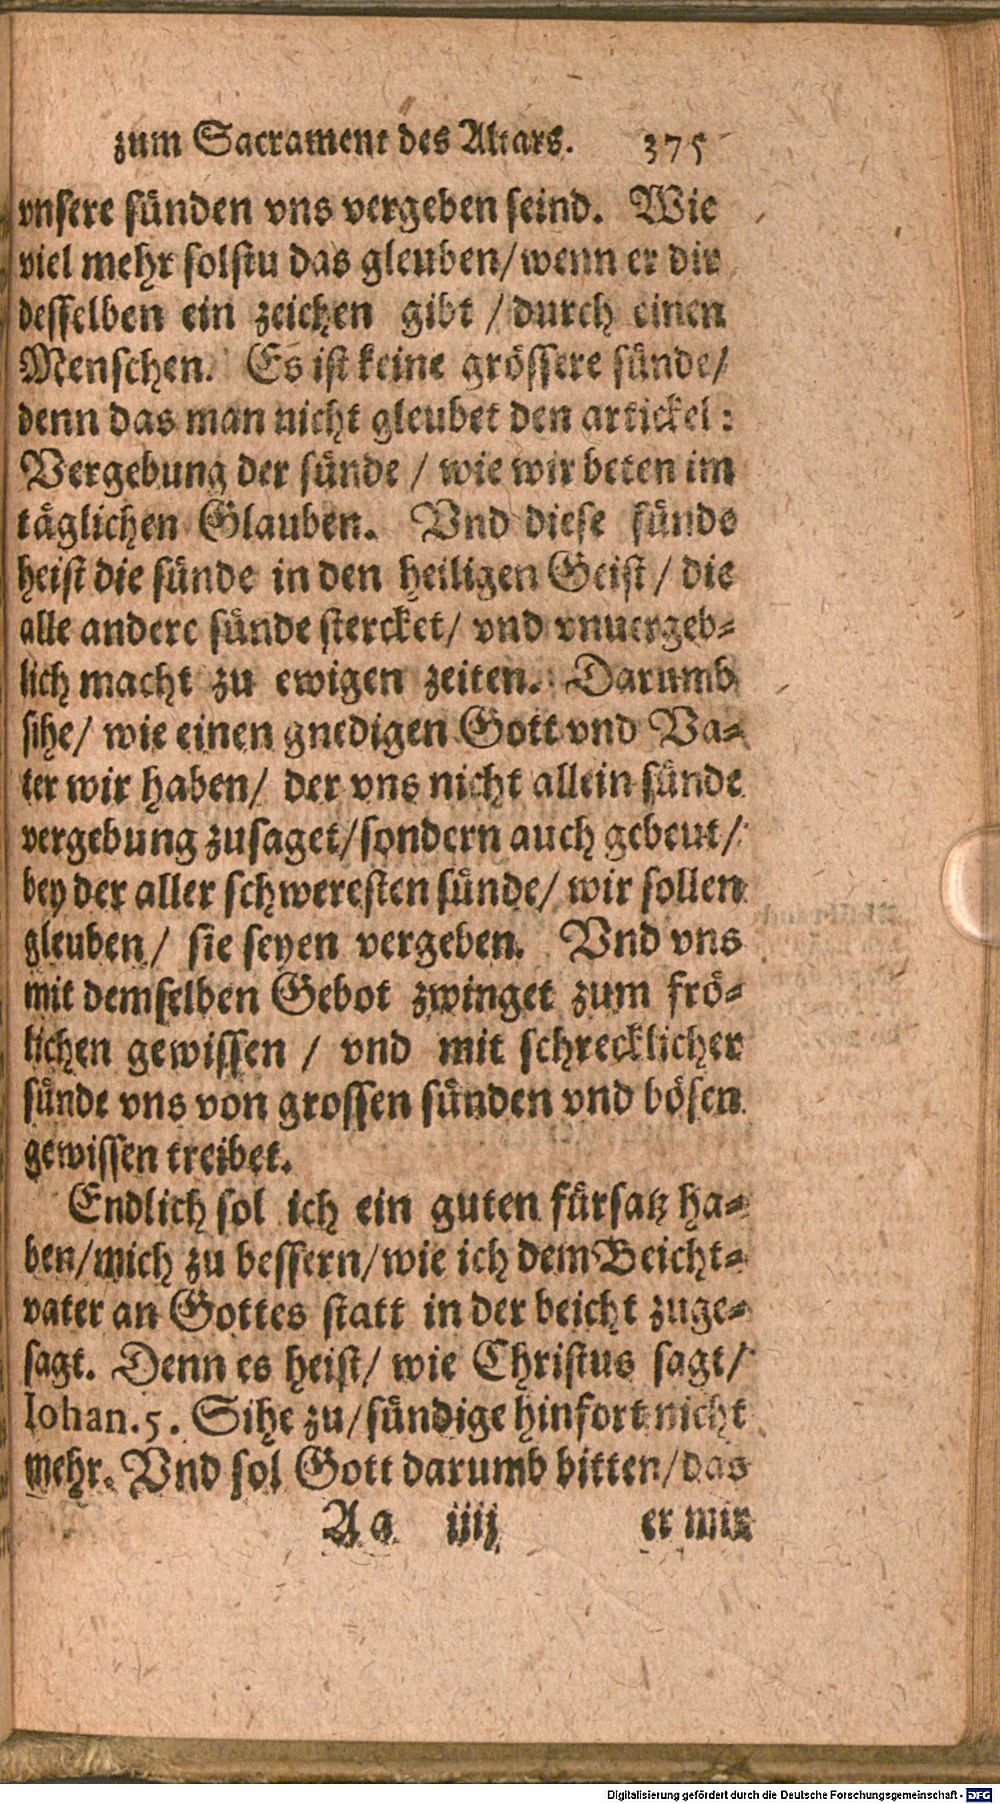 zum Sacrament des Altars. 375
vnsere sünden vns vergeben seind. Wie
viel mehr solstu das gleuben/wenn er dir
desselben ein zeichen gibt / durch einen
Menschen. Es ist keine grössere sünde/
denn das man nicht gleubet den artickel:
Vergebung der sünde / wie wir beten im
täglichen Glauben. Vnd diese sünde
heist die sünde in den heiligen Geist / die
alle andere sünde stercket/ vnd vnuergeb-
lich macht zu ewigen zeiten. Darumb
sihe/ wie einen gnedigen Gott vnd Va-
ter wir haben/ der vns nicht allein sünde
vergebung zusaget/sondern auch gebeut/
bey der aller schweresten sünde/ wir sollen
gleuben / sie seyen vergeben. Vnd vns
mit demselben Gebot zwinget zum frö-
lichen gewissen / vnd mit schrecklicher
sünde vns von grossen sünden vnd bösen
gewissen treibet.
Endlich sol ich ein guten fürsatz ha-
ben/mich zu bessern/wie ich dem Beicht-
vater an Gottes statt in der beicht zuge-
sagt. Denn es heist/ wie Christus sagt/
Iohan.5. Sihe zu/sündige hinfort nicht
mehr. Vnd sol Gott darumb bitten/das
Aa iiij er mir
Digitalisierung gefördert durch die Deutsche Forschungsgemeinschaft - DFG